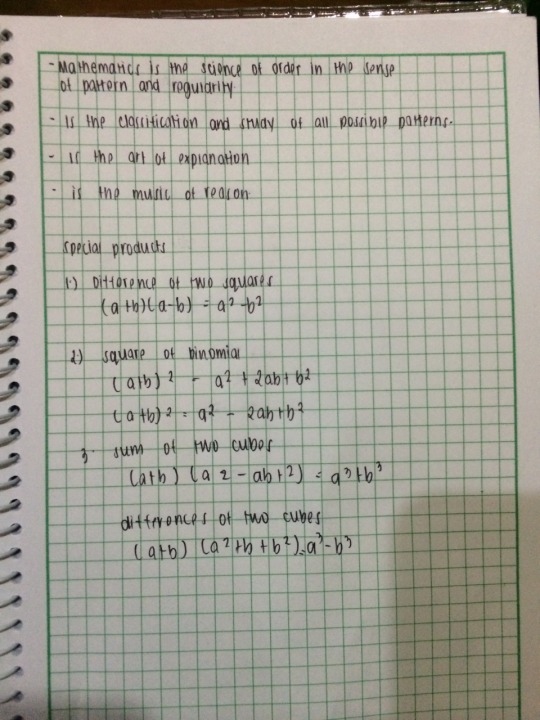 - Mathematics is the science of order in the sense
of pattern and regularity
- Is the classification and study of all possible patterns.
- Is the art of explanation
- is the music of reason
special products
1.) Difference of two squares
(a+b)(a-b) = a² -b²
2.) square of binomial
(a+b)² - a² + 2ab + b²
(a+b)² = a² - 2ab + b²
3. sum of two cubes
(a+b) (a 2 - ab + 2) = a³+b³
differences of two cubes
(a+b) (a²+b+b²)=a³-b³